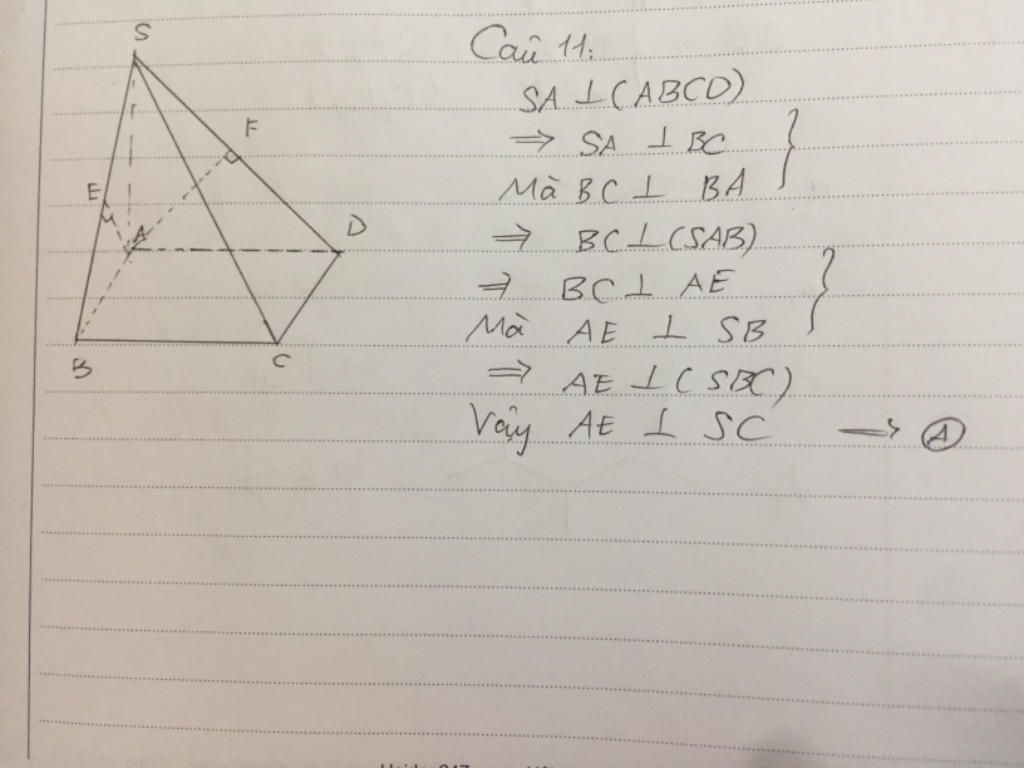 S
F
E
A
D
B
C
Câu 11:
SA ⊥ (ABCD)
⇒ SA ⊥ BC
Mà BC ⊥ BA
⇒ BC ⊥ (SAB)
⇒ BC ⊥ AE
Mà AE ⊥ SB
⇒ AE ⊥ (SBC)
Vậy AE ⊥ SC → Ⓐ